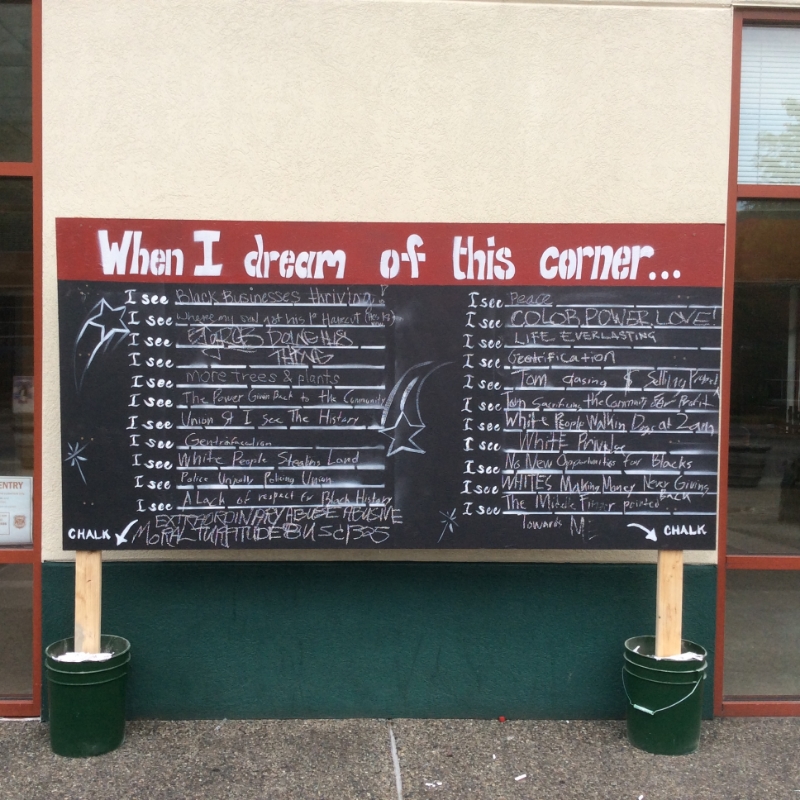 When I dream of this corner...
I see Black Businesses thriving!
I see my 1st Haircut
I see DOING HIS
THING
I see
I see more trees & plants
I see The Power Given Back to the Community
I see Union St I see The History
I see Gentrification
I see White People Stealing Land
I see Police Unjustly Policing Union
I see A Lack of respect for Black History
EXTRAORDINARY ABUSE
MORAL TURPITUDE BY
CHALK
I see Peace
I see COLOR POWER LOVE!
I see LIFE EVERLASTING
I see Gentrification
I see Tom Gasing $ Selling Property
I see Tom Sacrificing the Community for Profit
I see White People Walking Dogs at 2am
I see White Privilege
I see No New Opportunities for Blacks
I see WHITES Making Money Never Giving
BACK
I see The Middle Finger pointed
Towards ME
CHALK
ENTRY